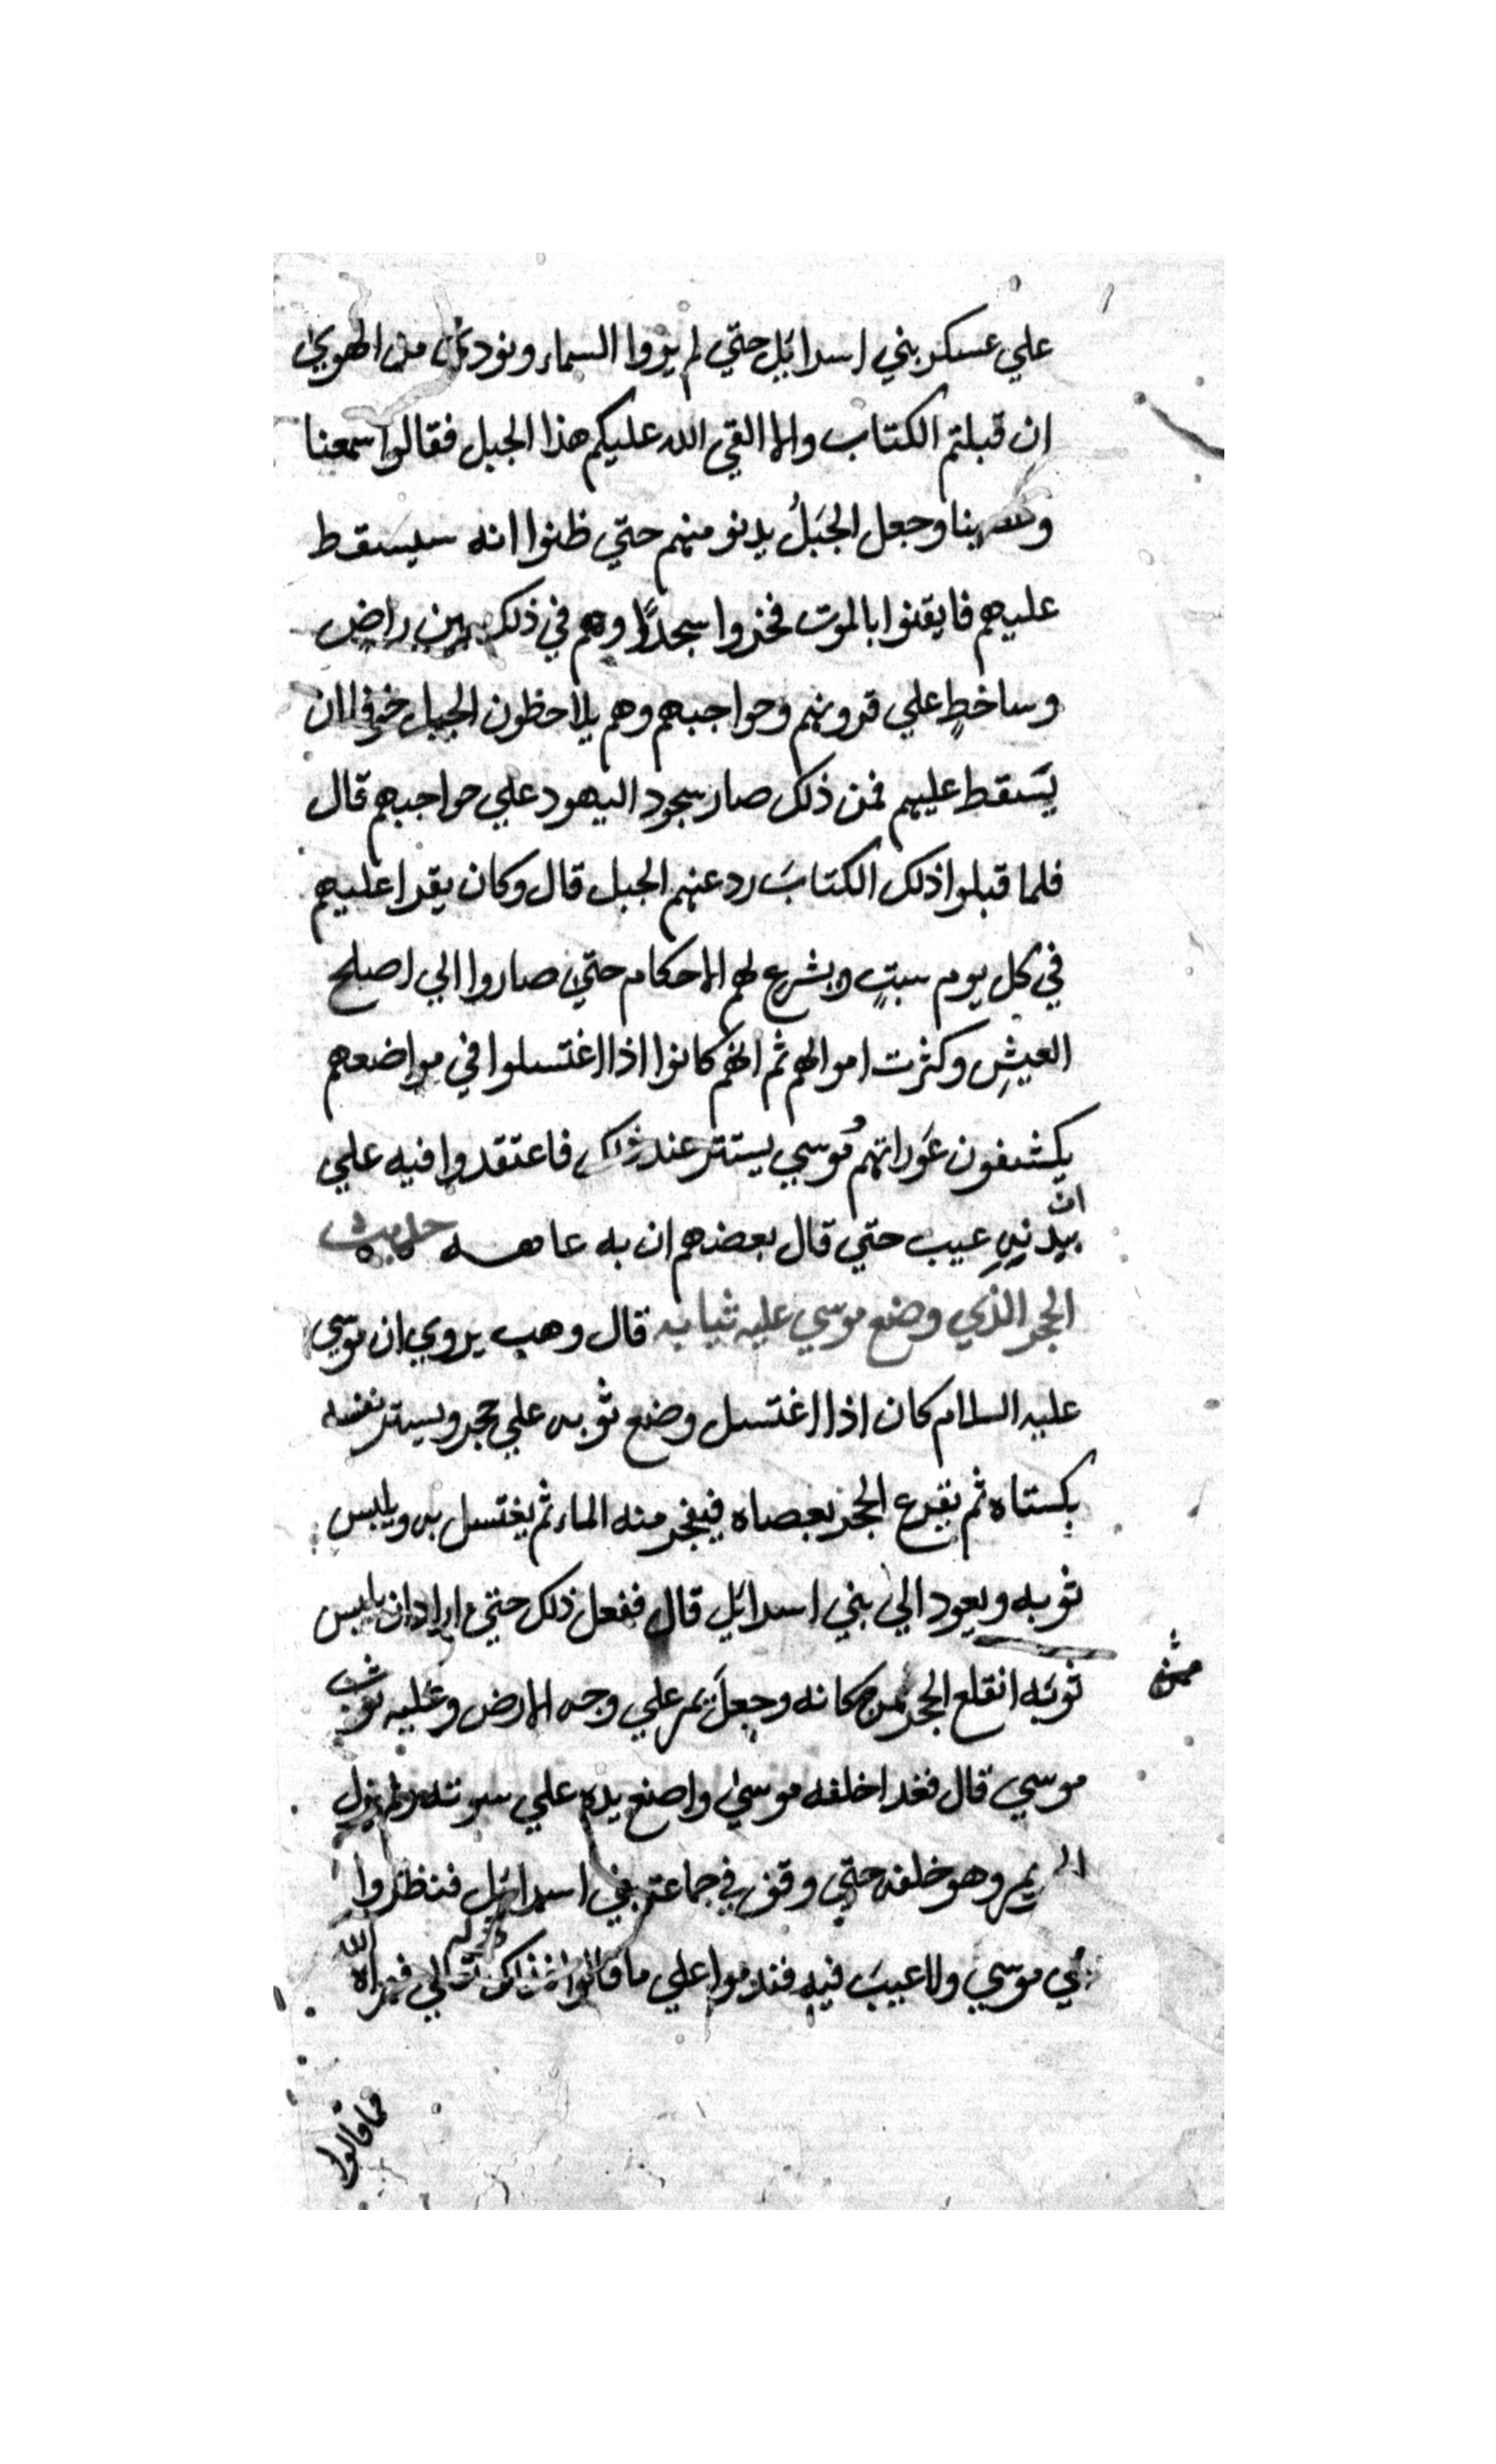 علي عسكر بني اسرائيل حتي لم يروا السماء ونودي من الهوي
ان قبلتم الكتاب والا القي الله عليكم هذا الجبل فقالوا سمعنا
وجعل الجبَلُ يدنو منهم حتي ظنوا انه سيسقط
عليهم فايقنوا بالموت فخروا سجدًا وهم في ذلك بين راضٍ
وساخطٍ علي قرونهم وحواجبهم وهم يلاحظون الجبل خوفا ان
يَسقط عليهم فمن ذلك صار سجود اليهود علي حواجبهم قال
فلما قبلوا ذلك الكتابَ رد عنهم الجبل قال وكان يقرا عليهم
في كل يوم سبتٍ ويشرع لهم الاحكام حتي صاروا الي اصلح
العيشِ وكثرت اموالهم ثم انهم كانوا اذا اغتسلوا في مواضعهم
يكشفون عَوراتهم وموسي يستتر عند ذلك فاعتقدوا فيه علي
ان
بيدنهِ عيب حتي قال بعضهم ان به عاهه حديث
الحجر الذي وضع موسي عليه ثيابه قال وهب يروي ان موسي
عليه السلام كان اذا اغتسل وضع ثوبه علي حجر ويستر نفسه
بكستاه ثم يقرع الحجر بعصاه فينفجر منه الماء ثم يغتسل به ويلبس
ثوبه ويعود الي بني اسرائيل قال ففعل ذلك حتي اراد ان يلبس
ثوبَه انقلع الحجر من مكانه وجعلَ يمر علي وجه الارض وعليه ثوب
موسي قال فغدا خلفه موسي واضع يده علي سوته ولم يزل
يمر وهو خلفه حتي وقف في جماعة بني اسرائيل فنظروا
الي موسي ولا عيبَ فيه فندموا علي ما قالوا فذلك قوله تعالي فبراه الله
مما قالوا